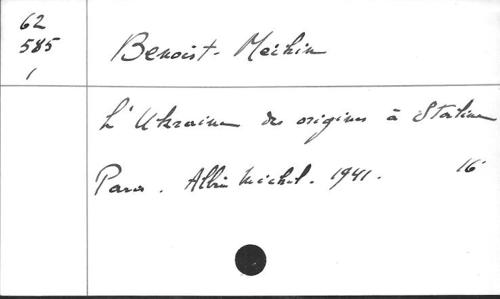 62
585
1
Benoist-Mechin
L'Ukraine des origines à Staline
Paris. Albin Michel. 1941. 16°